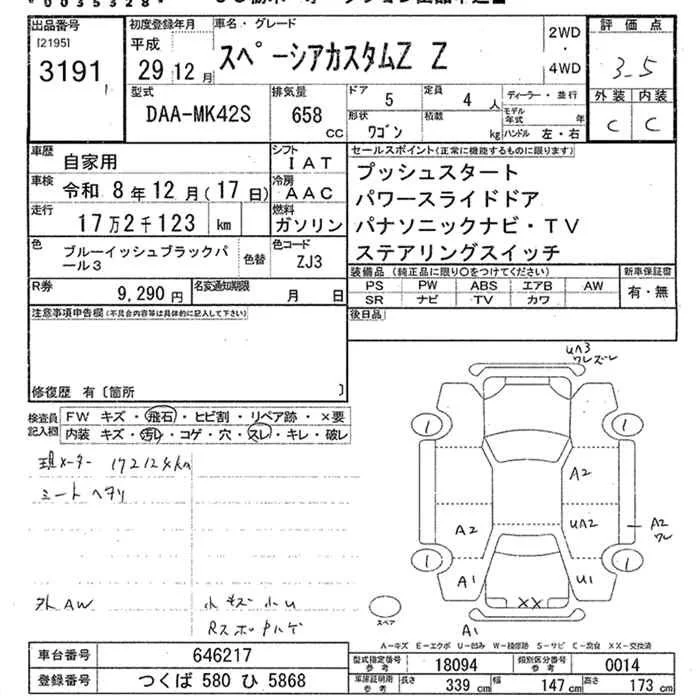 *0035328*
出品番号 初度登録年月 車名・グレード 2WD ・ 4WD 評価点
[2195] 3191
平成 29年12月 スペーシアカスタムZ Z 3.5
型式 DAA-MK42S 排気量 658 CC
ドア 5 定員 4人 ディーラー・並行 外装 内装
形状 ワゴン 積載 kg モデル年式 年 ハンドル 左・右 C C
車歴 自家用 シフト IAT セールスポイント(正常に機能するものに限ります)
車検 令和 8年12月(17日) 冷房 AAC プッシュスタート
パワースライドドア
走行 17万2千123 km 燃料 ガソリン パナソニックナビ・TV
色 ブルーイッシュブラックパール3 色替 色コード ZJ3 ステアリングスイッチ
装備品(純正品に限り○をつけてください) 新車保証書
R券 9,290円 名変通知期限 月 日 PS PW ABS エアB AW 有・無
SR ナビ TV カワ
注意事項申告欄(不具合内容等は具体的に記入して下さい) 後日品
修復歴 有〔箇所 〕
検査員記入欄 FW キズ・飛石・ヒビ割・リペア跡・×要
内装 キズ・汚レ・コゲ・穴・スレ・キレ・破レ
現メーター 172124km
シートヘタリ
外AW 小キズ小U
UA3
ワレズレ
1 1
A2
A2 UA2 A2ワレ
1 1
A1 U1
XX
スペア A1
A-キズ E-エクボ U-凹み W-補修跡 S-サビ C-腐食 XX-交換済
車台番号 646217 型式指定番号 参考 18094 類別区分番号 参考 0014
登録番号 つくば 580 ひ 5868 車庫証明用 参考 長さ 339cm 幅 147cm 高さ 173cm